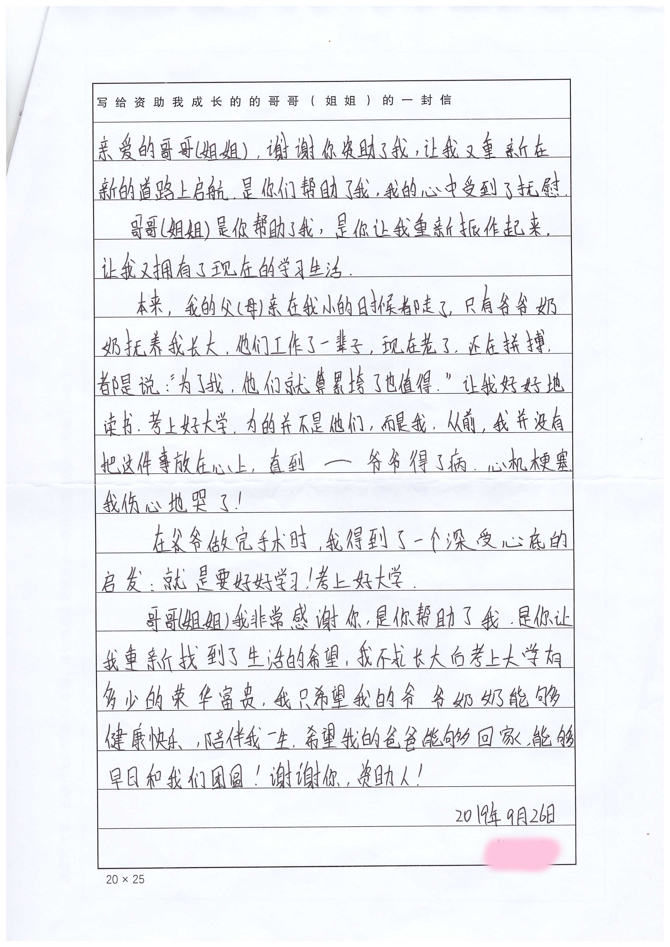 写给资助我成长的的哥哥(姐姐)的一封信
亲爱的哥哥(姐姐),谢谢你资助了我,让我又重新在
新的道路上启航.是你们帮助了我,我的心中受到了抚慰.
哥哥(姐姐)是你帮助了我,是你让我重新振作起来,
让我又拥有了现在的学习生活.
本来,我的父(母)亲在我小的日时候都走了,只有爷爷奶
奶抚养我长大.他们工作了一辈子,现在老了.还在拼搏,
都是说:“为了我,他们就算累垮了也值得.”让我好好地
读书.考上好大学.为的并不是他们,而是我.从前,我并没有
把这件事放在心上,直到——爷爷得了病.心机梗塞
我伤心地哭了!
在爷爷做完手术时,我得到了一个深受心底的
启发:就是要好好学习!考上好大学.
哥哥(姐姐)我非常感谢你,是你帮助了我.是你让
我重新找到了生活的希望,我不求长大后考上大学有
多少的荣华富贵,我只希望我的爷爷奶奶能够
健康快乐,陪伴我一生.希望我的爸爸能够回家,能够
早日和我们团圆!谢谢你,资助人!
2019年9月26日
20×25